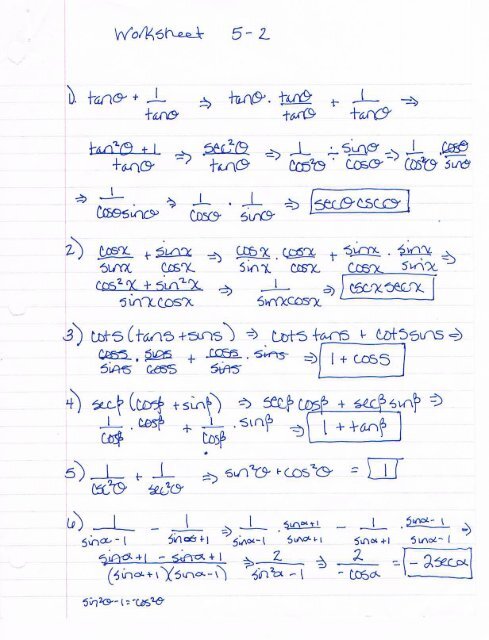 Worksheet 5-2
1) tanθ + 1/tanθ ⇒ tanθ · tanθ/tanθ + 1/tanθ ⇒
tan²θ + 1/tanθ ⇒ sec²θ/tanθ ⇒ 1/cos²θ ÷ sinθ/cosθ ⇒ 1/cos²θ · cosθ/sinθ
⇒ 1/cosθsinθ ⇒ 1/cosθ · 1/sinθ ⇒ secθcscθ
2) cosx/sinx + sinx/cosx ⇒ cosx/sinx · cosx/cosx + sinx/cosx · sinx/sinx ⇒
cos²x + sin²x/sinxcosx ⇒ 1/sinxcosx ⇒ cscxsecx
3) cots(tans + sins) ⇒ cotstans + cotssins ⇒
coss/sins · sins/coss + coss/sins · sins ⇒ 1 + coss
4) secβ(cosβ + sinβ) ⇒ secβcosβ + secβsinβ ⇒
1/cosβ · cosβ + 1/cosβ · sinβ ⇒ 1 + tanβ
5) 1/csc²θ + 1/sec²θ ⇒ sin²θ + cos²θ = 1
6) 1/sinα-1 - 1/sinα+1 ⇒ 1/sinα-1 · sinα+1/sinα+1 - 1/sinα+1 · sinα-1/sinα-1 ⇒
sinα+1 - sinα+1/(sinα+1)(sinα-1) ⇒ 2/sin²α-1 ⇒ 2/-cosα = -2secα
sin²θ-1=-cos²θ